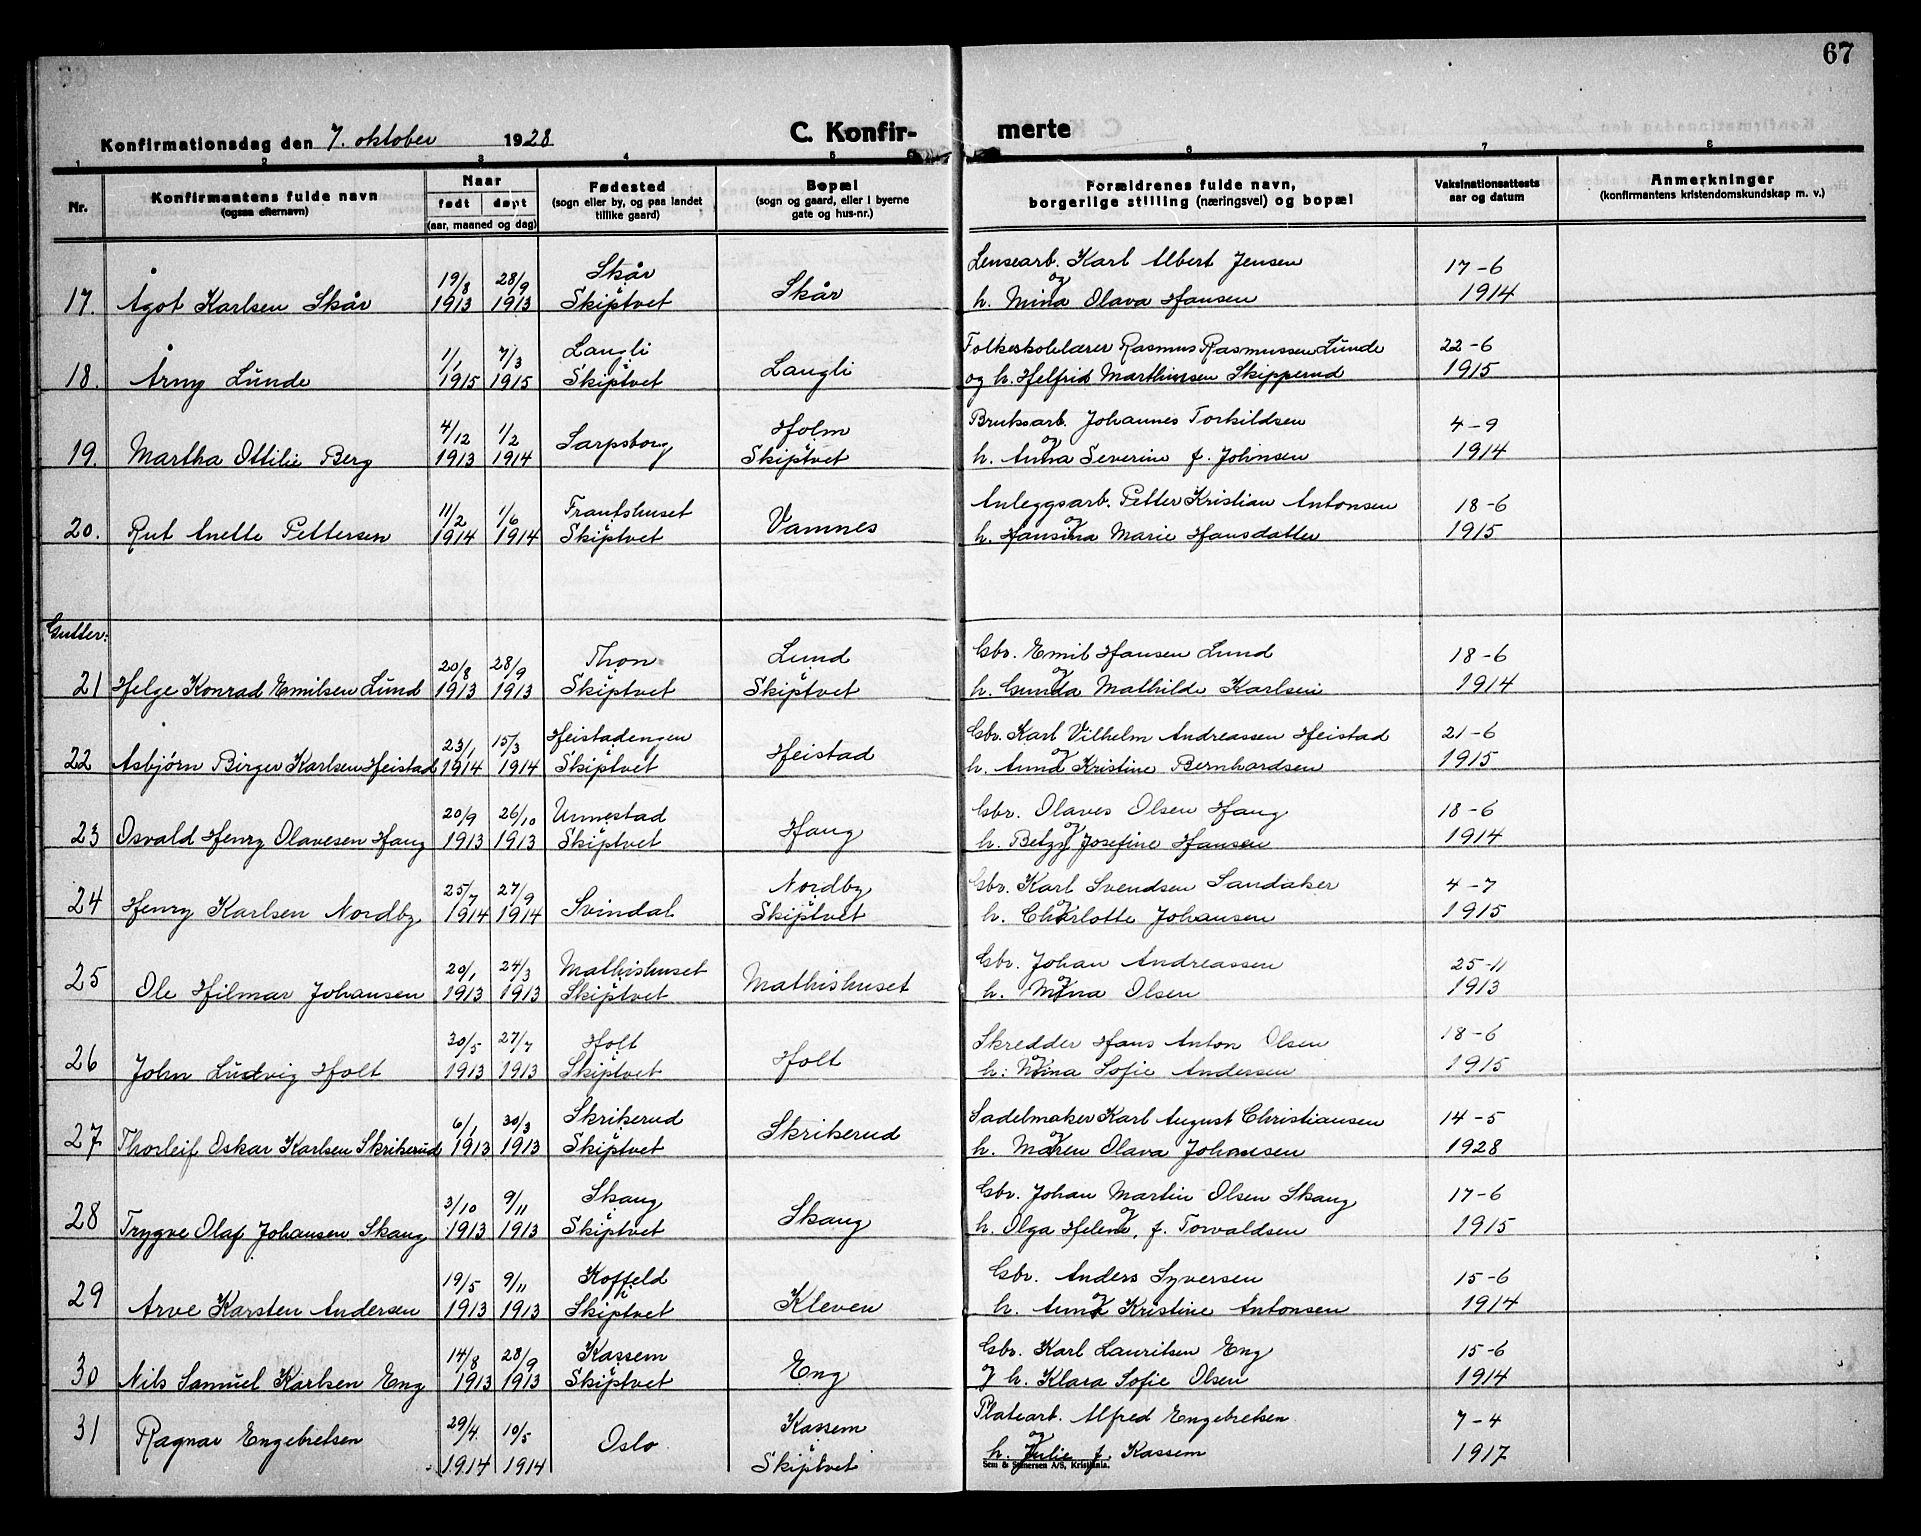 67
Konfirmationsdag den 7. oktober 1928 C. Konfir- merte
1 2 3 4 5 6 7 8
Nr. Konfirmantens fulde navn (ogsaa efternavn) Naar født døpt (aar, maaned og dag) Fødested (sogn eller by, og paa landet tillike gaard) Bopæl (sogn og gaard, eller i byerne gate og hus-nr.) Forældrenes fulde navn, borgerlige stilling (næringsvei) og bopæl Vaksinationsattests aar og datum Anmerkninger (konfirmantens kristendomskundskap m. v.)
19/8 28/9 Skår Lensearb. Karl Albert Jensen 17-6
17. Ågot Karlsen Skår 1913 1913 Skiptvet Skår og h. Mina Olava Hansen 1914
1/1 7/3 Langli Folkeskolelærer Rasmus Rasmussen Lunde 22-6
18. Årny Lunde 1915 1915 Skiptvet Langli og h. Helfrid Marthinsen Skipperud 1915
4/12 1/2 Holm Bruksarb. Johannes Torkildsen 4-9
19. Martha Ottilie Berg 1913 1914 Sarpsborg Skiptvet og h. Anna Severine f. Johnsen 1914
11/2 1/6 Frantshuset Anleggsarb. Petter Kristian Antonsen 18-6
20. Rut Anette Pettersen 1914 1914 Skiptvet Vamnes og h. Hansina Marie Hansdatter 1915
Gutter:
20/8 28/9 Thon Lund Gbr. Emil Hansen Lund 18-6
21 Helge Konrad Emilsen Lund 1913 1913 Skiptvet Skiptvet og h. Gunda Mathilde Karlsen 1914
23/1 15/3 Heistadengen Gbr. Karl Vilhelm Andreassen Heistad 21-6
22 Asbjørn Birger Karlsen Heistad 1914 1914 Skiptvet Heistad og h. Anna Kristine Bernhardsen 1915
20/9 26/10 Unnestad Gbr. Olaves Olsen Haug 18-6
23 Osvald Henry Olavesen Haug 1913 1913 Skiptvet Haug og h. Betzy Josefine Hansen 1914
25/7 27/9 Nordby Gbr. Karl Svendsen Sandaker 4-7
24 Henry Karlsen Nordby 1914 1914 Svindal Skiptvet og h. Charlotte Johansen 1915
20/1 24/3 Mathishuset Gbr. Johan Andreassen 25-11
25 Ole Hilmar Johansen 1913 1913 Skiptvet Mathishuset og h. Mina Olsen 1913
30/5 27/7 Holt Skredder Hans Anton Olsen 18-6
26 John Ludvig Holt 1913 1913 Skiptvet Holt og h: Mina Sofie Andersen 1915
6/1 30/3 Skrikerud Sadelmaker Karl August Christiansen 14-5
27 Thorleif Oskar Karlsen Skrikerud 1913 1913 Skiptvet Skrikerud og h. Maren Olava Johannesen 1928
3/10 9/11 Skaug Gbr. Johan Martin Olsen Skaug 17-6
28 Trygve Olaf Johansen Skaug 1913 1913 Skiptvet Skaug og h. Olga Helene, f. Torvaldsen 1915
19/5 9/11 Koffeld Gbr. Anders Syversen 15-6
29 Arve Karsten Andersen 1913 1913 Skiptvet Kleven og h. Anna Kristine Antonsen 1914
14/8 28/9 Kassem Gbr. Karl Lauritsen Eng 15-6
30 Nils Samuel Karlsen Eng 1913 1913 Skiptvet Eng og h. Klara Sofie Olsen 1914
29/4 10/5 Kassem Platearb. Alfred Engebretsen 7-4
31 Ragnar Engebretsen 1914 1914 Oslo Skiptvet og h. Julie f. Kassem 1917
Sem & Stenersen A/S, Kristiania.